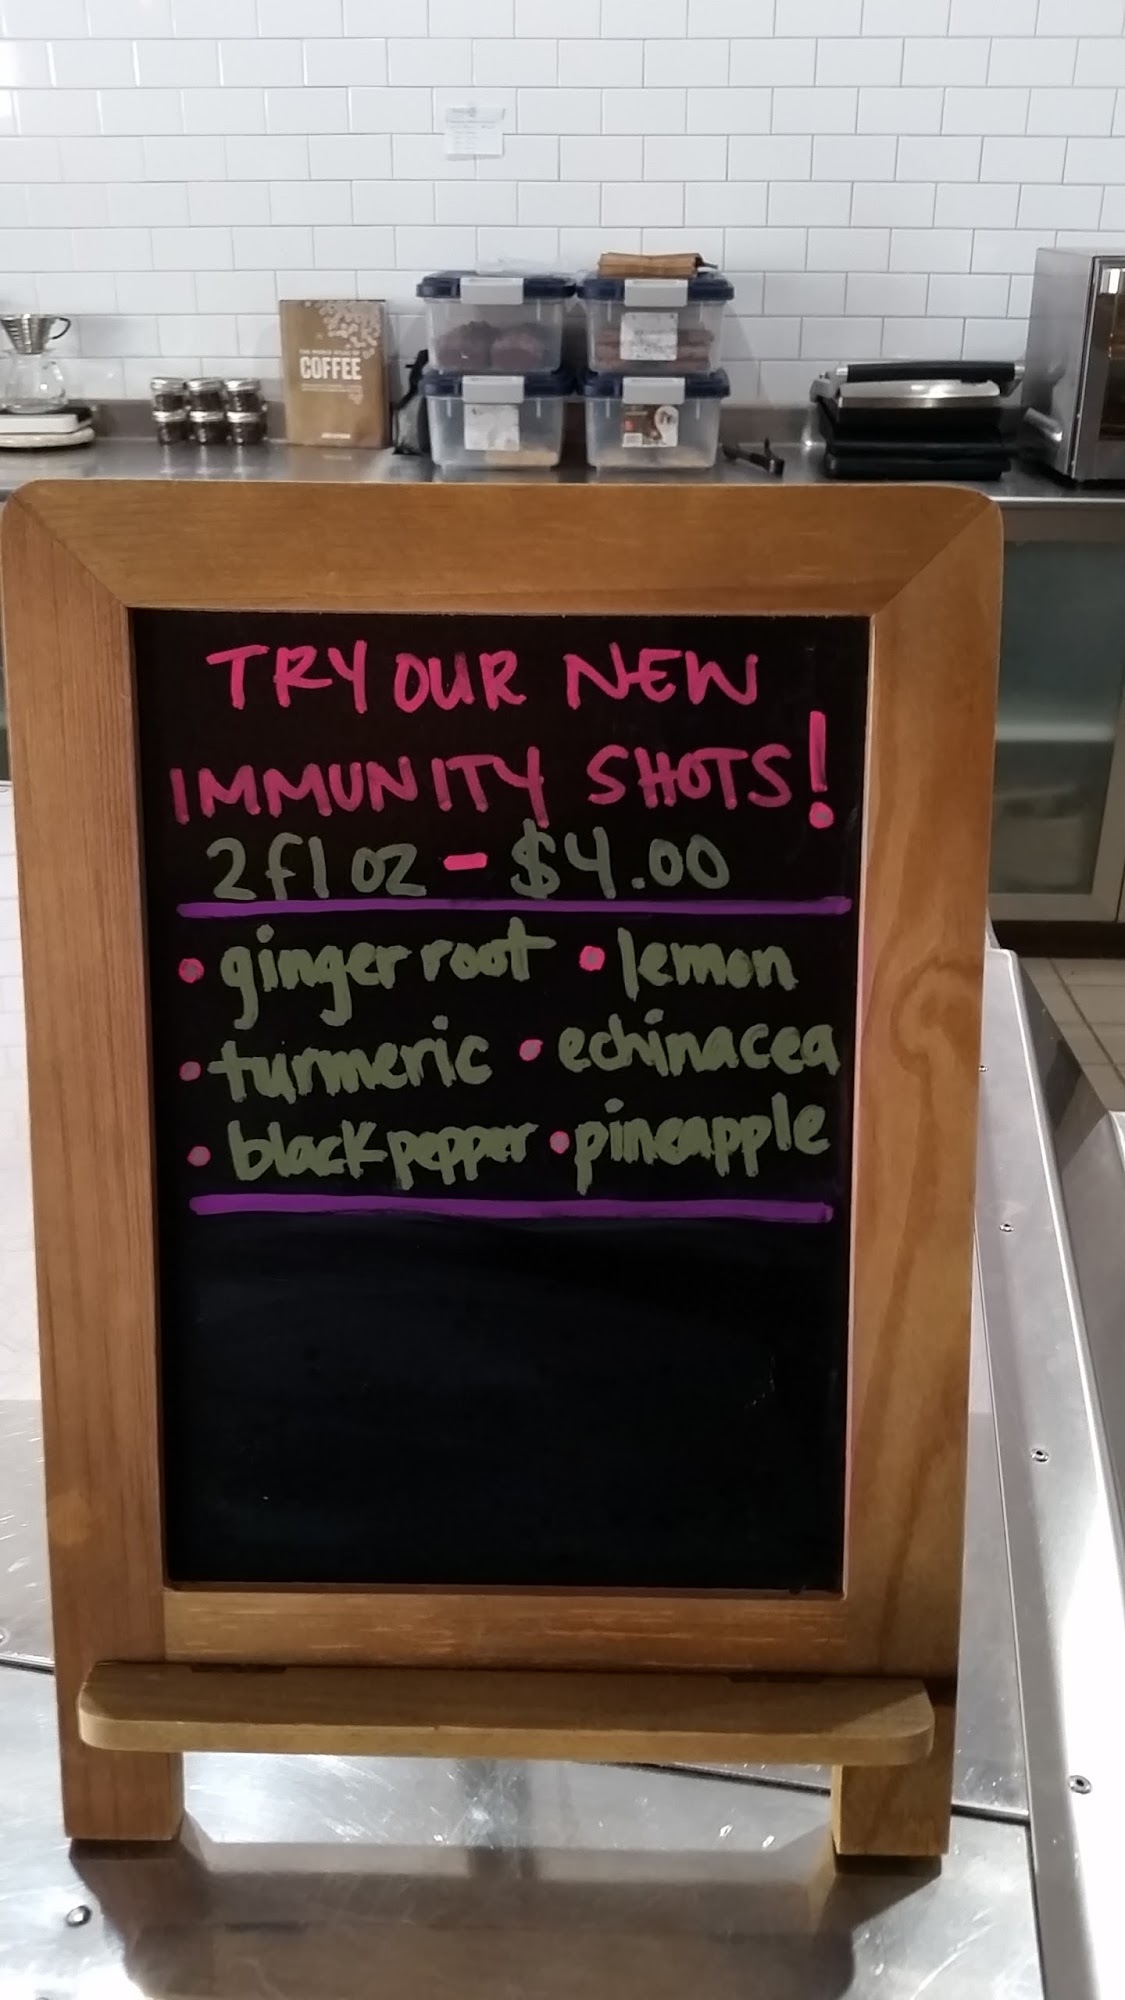 THE WORLD ATLAS OF
COFFEE
TRY OUR NEW
IMMUNITY SHOTS!
2 fl oz - $4.00
• ginger root • lemon
• turmeric • echinacea
• black pepper • pineapple